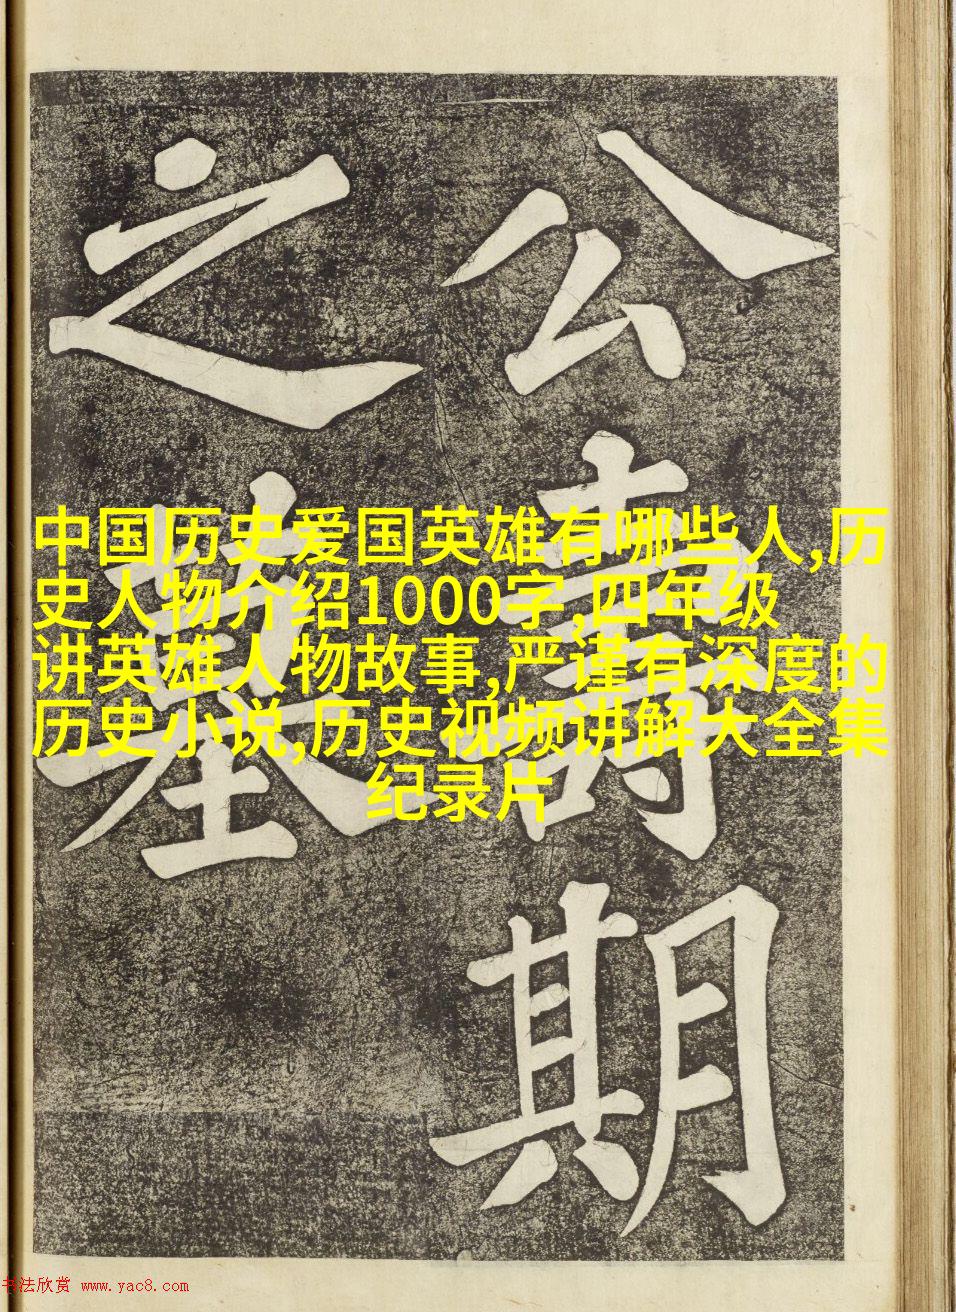 公壽期
之墓
中国历史爱国英雄有哪些人,历
史人物介绍1000字,四年级
讲英雄人物故事,严谨有深度的
历史小说,历史视频讲解大全集
纪录片
书法欣赏 www.yac8.com